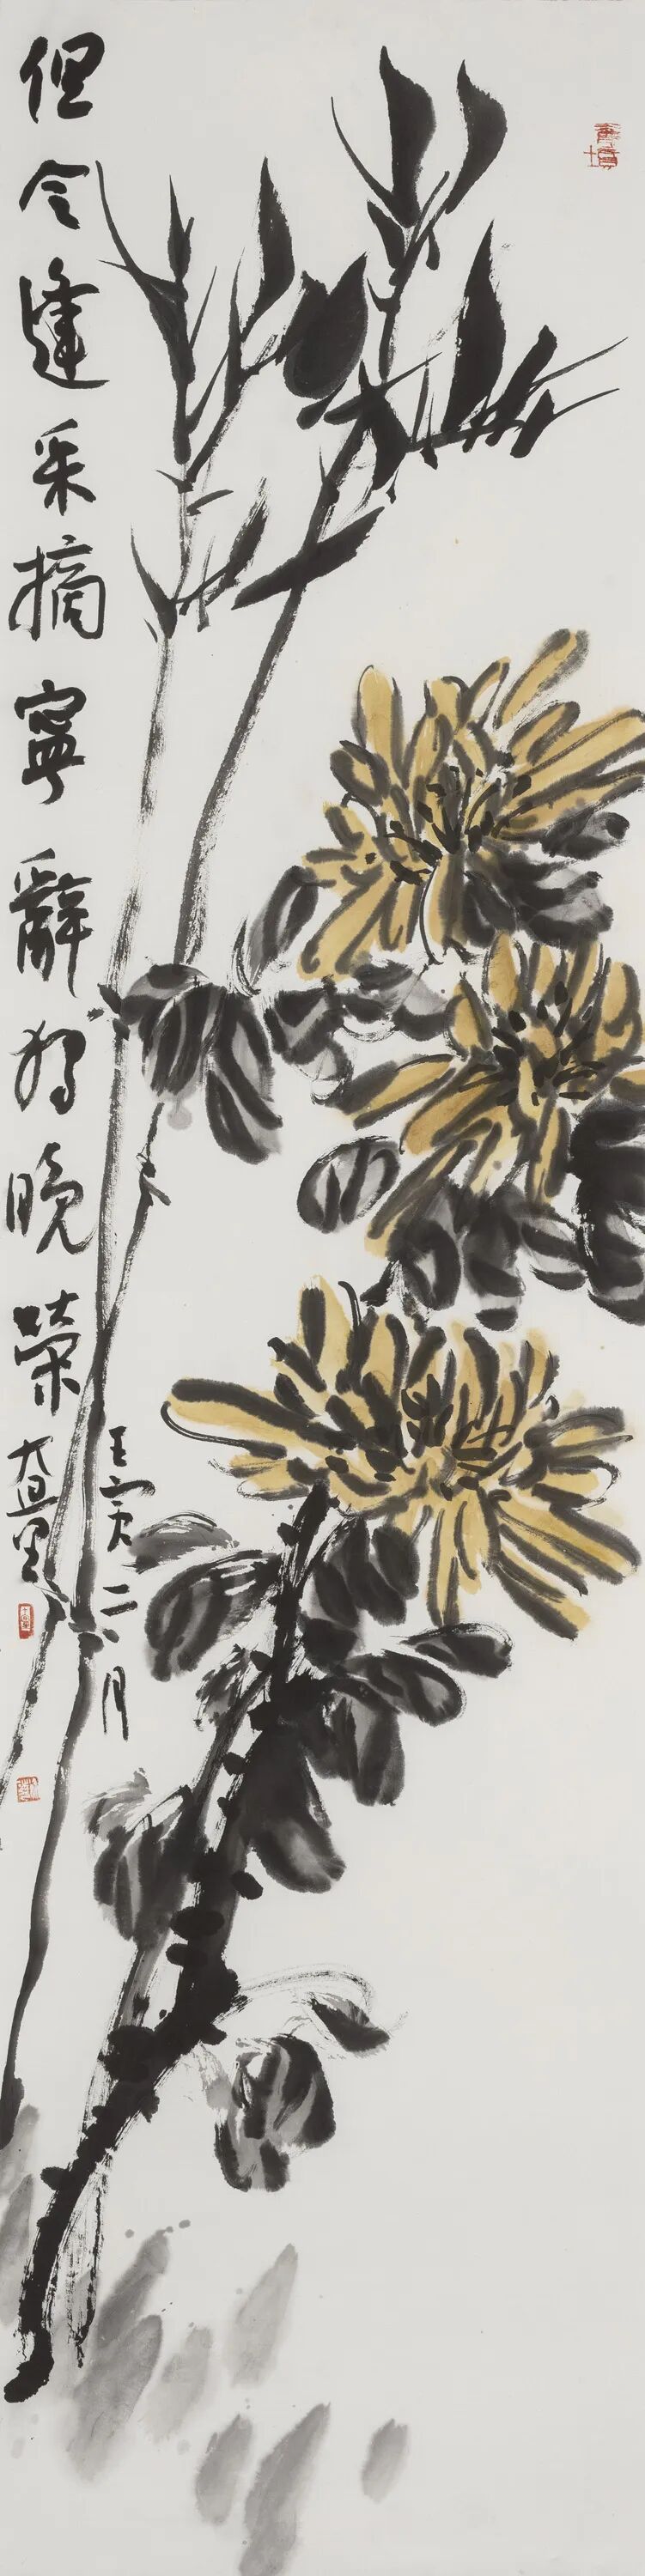 但令逢采摘寧辭獨晚榮
壬寅二月